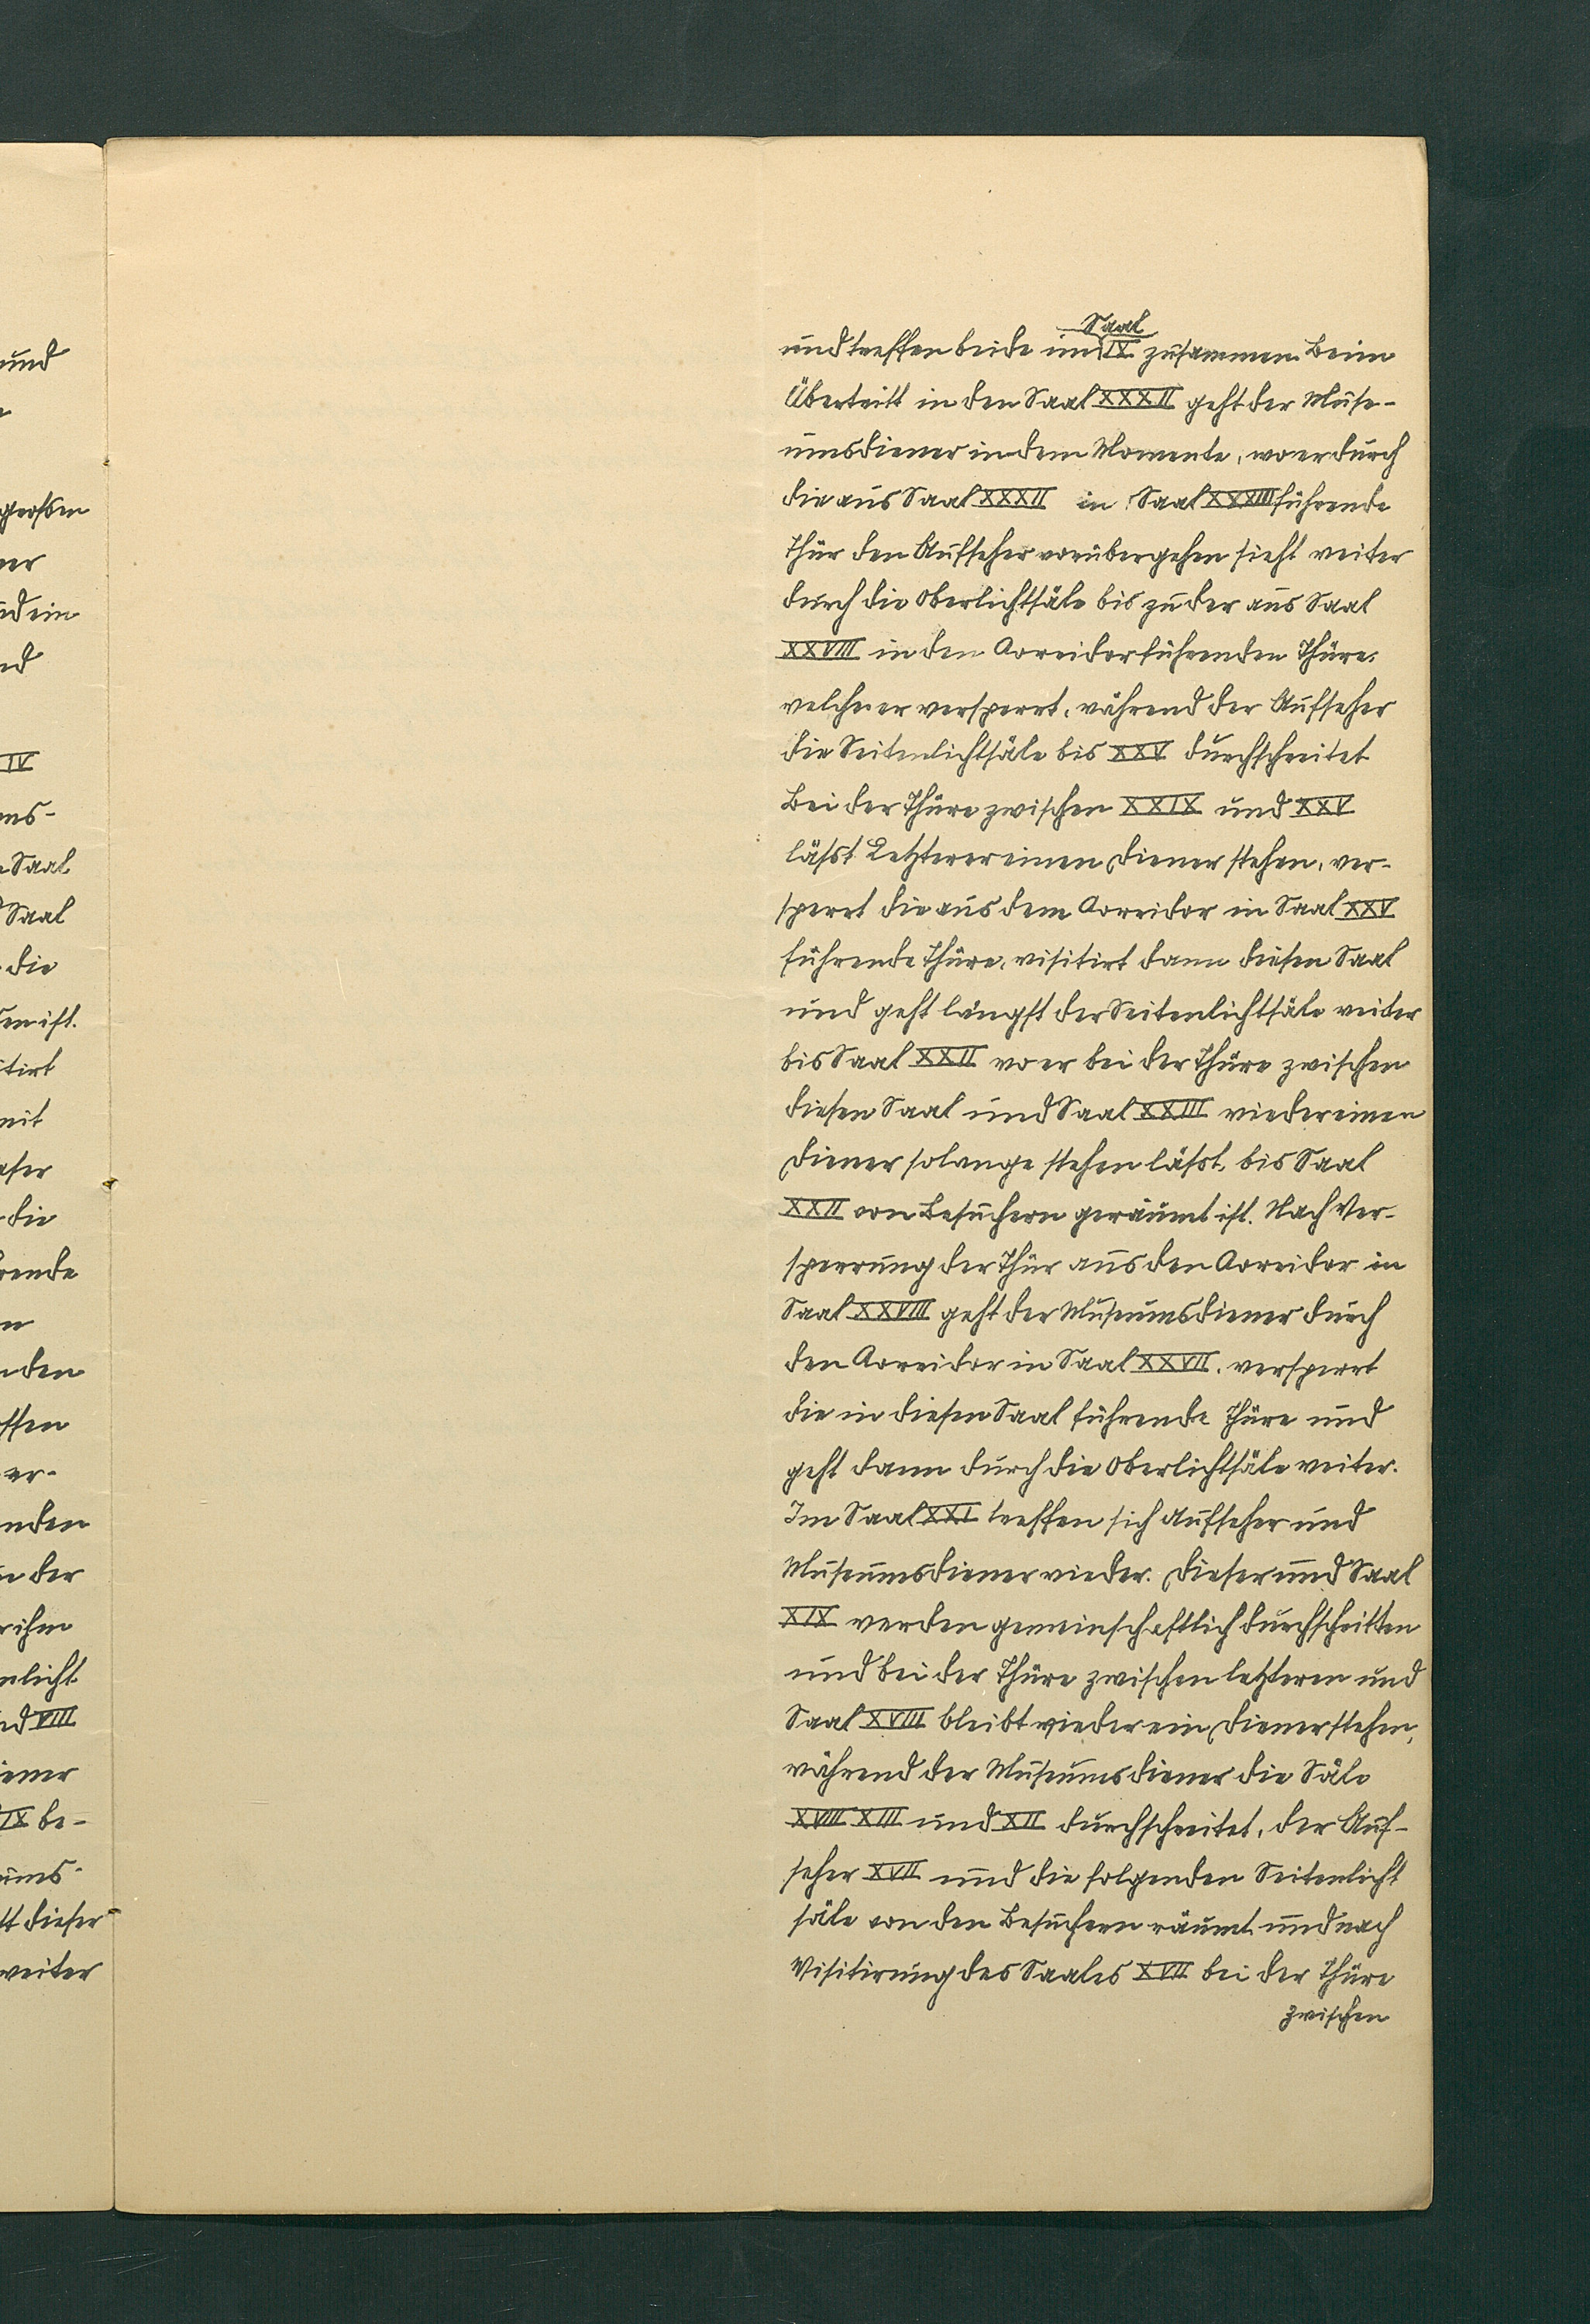 und
groſsen
ner
und ein
nd
IV
ms-
Saal
Saal
die
en iſt.
itirt
mit
aſer
die
rende
n
nden
ffen
er-
nden
der
ihm
nlicht
nd VIII
iener
IX be-
ums-
tt dieſer
weiter
Saal
und treffen beide im IX zuſammen. Beim
Übertritt in den Saal XXXII geht der Muſe-
umsdiener in dem Momente, wo er durch
die aus Saal XXXII in Saal XXXIII führende
Thür den Aufſeher vorübergehen ſieht weiter
durch die Oberlichtſäle bis zu der aus Saal
XXVIII in den Corridor führenden Thüre,
welche er verſperrt, während der Aufſeher
die Seitenlichtſäle bis XXV durchſchreitet.
Bei der Thüre zwiſchen XXIX und XXV
läſst Letzterer einen Diener ſtehen, ver-
ſperrt die aus dem Corridor in Saal XXV
führende Thüre, viſitirt dann dieſen Saal
und geht längſt der Seitenlichtſäle weiter
bis Saal XXII wo er bei der Thüre zwiſchen
dieſen Saal und Saal XXIII wieder einen
Diener ſolange ſtehen läſst, bis Saal
XXII von Beſuchern geräumt iſt. Nach Ver-
ſperrung der Thür aus den Corridor in
Saal XXVIII geht der Muſeumsdiener durch
den Corridor in Saal XXVII, verſperrt
die in dieſen Saal führende Thüre und
geht dann durch die Oberlichtſäle weiter.
Im Saal XXI treffen ſich Aufſeher und
Muſeumsdiener wieder. Dieſer und Saal
XIX werden gemeinſchaftlich durchſchritten
und bei der Thüre zwiſchen letzteren und
Saal XVIII bleibt wieder ein Diener ſtehen,
während der Muſeumsdiener die Säle
XVIII XIII und XII durchſchreitet, der Auf-
ſeher XVII und die folgenden Seitenlicht
ſäle von den Beſuchern räumt und nach
Viſitirung des Saales XVII bei der Thüre
zwiſchen